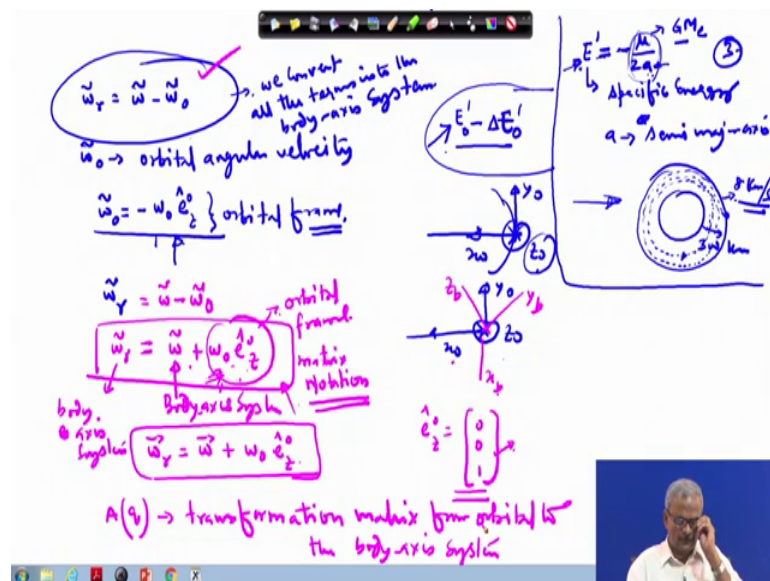 w̃_r = w̃ - w̃_0
→ we convert all the terms into the body-axis system
w̃_0 → orbital angular velocity
w̃_0 = - w_0 ê_z^0 } orbital frame.
w̃_r = w̃ - w̃_0
w̃_r = w̃ + w_0 ê_z^0
orbital frame.
matrix Notation
Body axis System
body axis System
w⃗_r = w⃗ + w_0 ê_z^0
A(q) → transformation matrix from orbital to
the body-axis system
E_0' - ΔE_0'
y_0
x_0
z_0
z_b
y_0
y_b
x_0
z_0
x_b
ê_z^0 = [0 0 1]
E' = - μ/2a
GMe
3
specific Energy
a → Semi major-axis
8 km/s
km